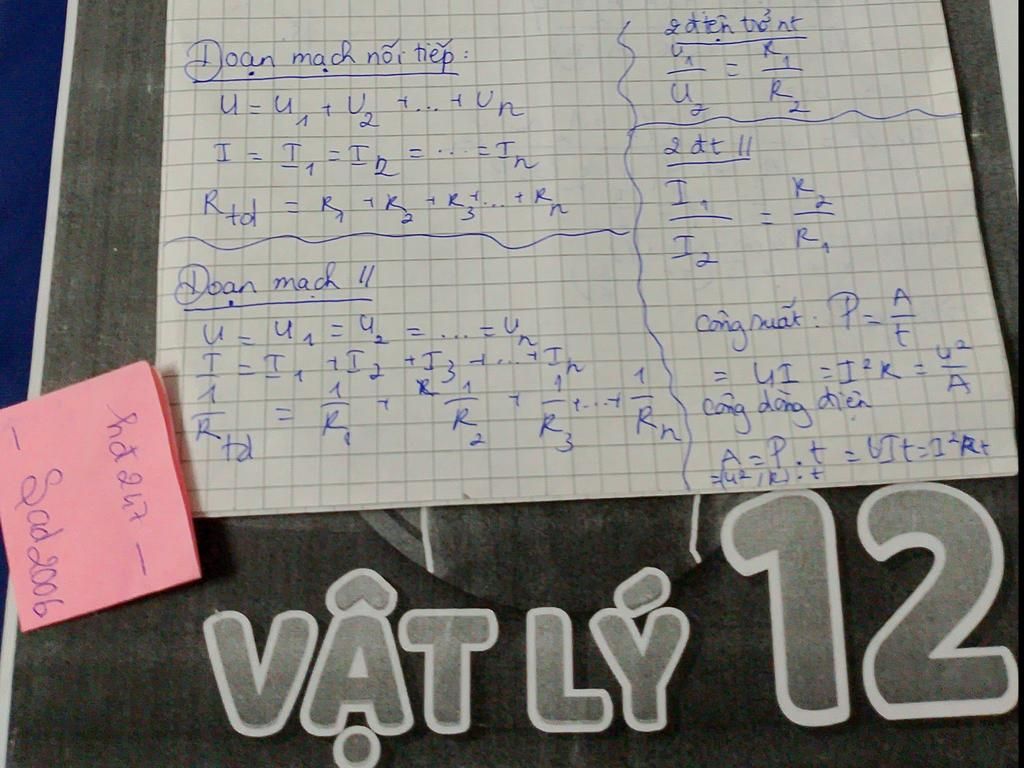 Đoạn mạch nối tiếp:
U = U₁ + U₂ + ... + Uₙ
I = I₁ = I₂ = ... = Iₙ
Rtđ = R₁ + R₂ + R₃ + ... + Rₙ
Đoạn mạch //
U = U₁ = U₂ = ... = Uₙ
I = I₁ + I₂ + I₃ + ... + Iₙ
1/Rtđ = 1/R₁ + 1/R₂ + 1/R₃ + ... + 1/Rₙ
2 điện trở nt
U₁/U₂ = R₁/R₂
2 đt //
I₁/I₂ = R₂/R₁
Công suất: P = A/t
= UI = I²R = U²/A
Công dòng điện
A = P . t = UIt = I²Rt
= (U²/R) . t
hđ 247 —
— Sad2006
VẬT LÝ 12